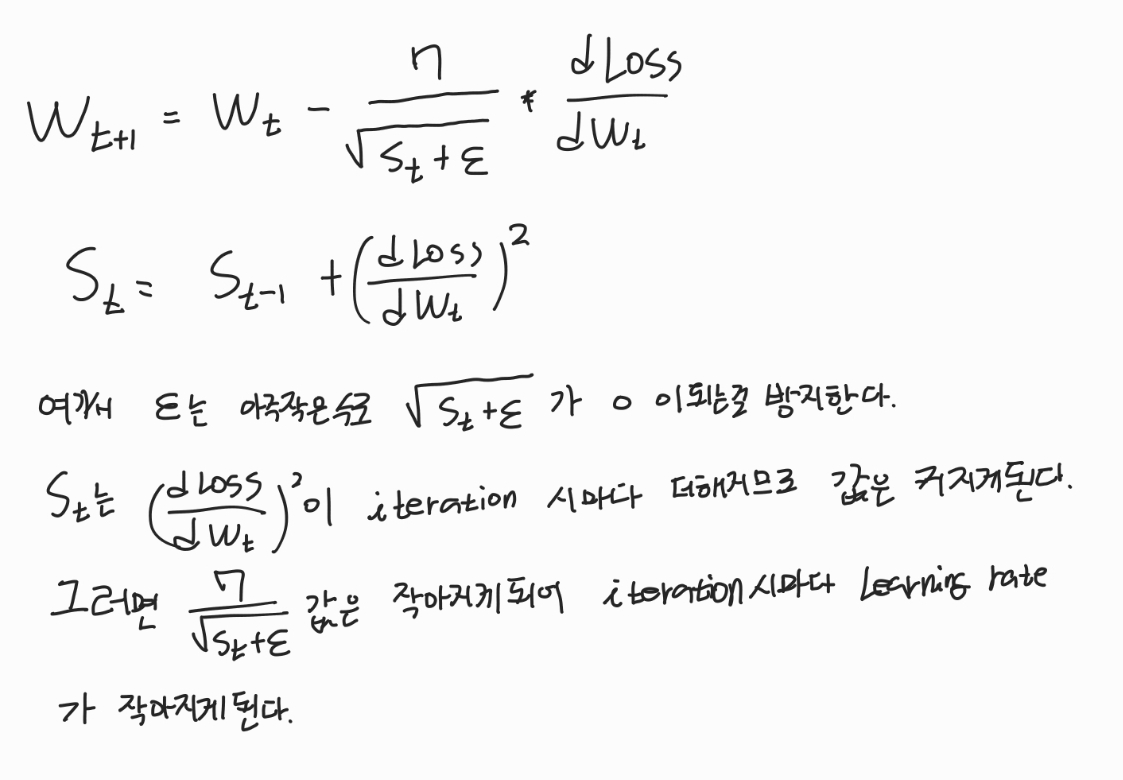 W_{t+1} = W_t - \frac{η}{\sqrt{S_t + ε}} * \frac{dLoss}{dW_t}
S_t = S_{t-1} + (\frac{dLoss}{dW_t})^2
여기서 ε는 아주작은수로 \sqrt{S_t + ε} 가 0 이되는걸 방지한다.
S_t는 (\frac{dLoss}{dW_t})^2이 iteration 시마다 더해지므로 값은 커지게된다.
그러면 \frac{η}{\sqrt{S_t + ε}} 값은 작아지게되어 iteration시마다 Learning rate
가 작아지게된다.